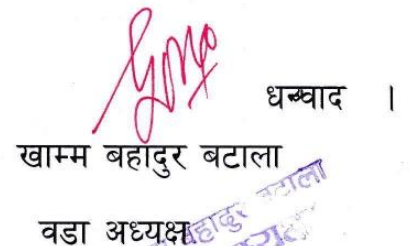 धन्यवाद ।
खाम्म बहादुर बटाला
वडा अध्यक्ष
बहादुर बटाला